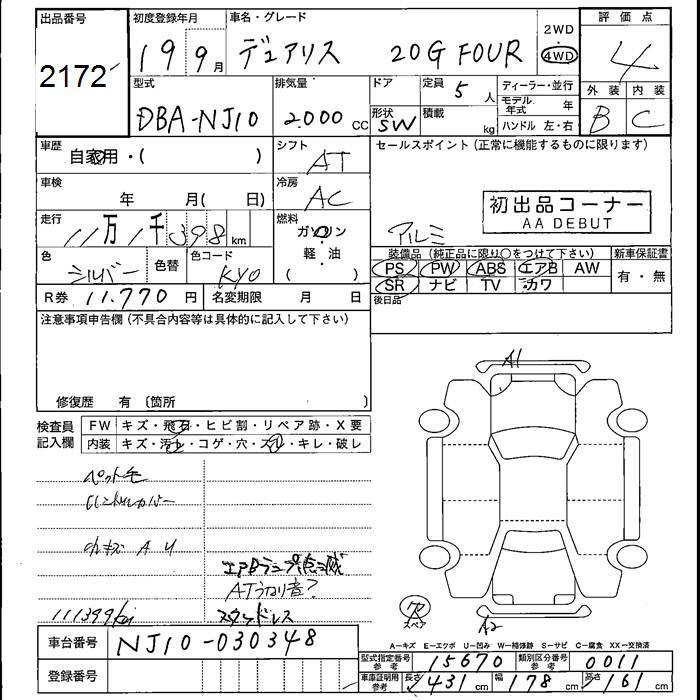 出品番号
2172
初度登録年月
19 9月
車名・グレード
デュアリス 20G FOUR
2WD
4WD
評価点
4
外装 内装
B C
型式
DBA-NJ10
排気量
2.000 CC
ドア
形状
SW
定員
5人
積載
kg
ディーラー・並行
モデル年式 年
ハンドル 左・右
車歴
自家用・( )
シフト
AT
セールスポイント(正常に機能するものに限ります)
車検
年 月( 日)
冷房
AC
初出品コーナー
AA DEBUT
走行
11万1千398km
燃料
ガソリン
軽・油
( )
アルミ
色
シルバー
色替
色コード
KY0
装備品(純正品に限り○をつけて下さい)
PS PW ABS エアB AW
SR ナビ TV カワ
新車保証書
有・無
R券 11.770円
名変期限 月 日
後日品
注意事項申告欄(不具合内容等は具体的に記入して下さい)
修復歴 有〔箇所 〕
検査員記入欄
FW キズ・飛石・ヒビ割・リペア跡・X要
内装 キズ・汚れ・コゲ・穴・スレ・キレ・破レ
A1
ペット毛
エアBランプ点滅
ATうねり音?
スタッドレス
111399km
A2
車台番号
NJ10-030348
登録番号
A-キズ E-エクボ U-凹み W-補修跡 S-サビ C-腐食 XX-交換済
型式指定番号参考
15670
類別区分番号参考
0011
車庫証明用参考
長さ 431cm
幅 178cm
高さ 161cm